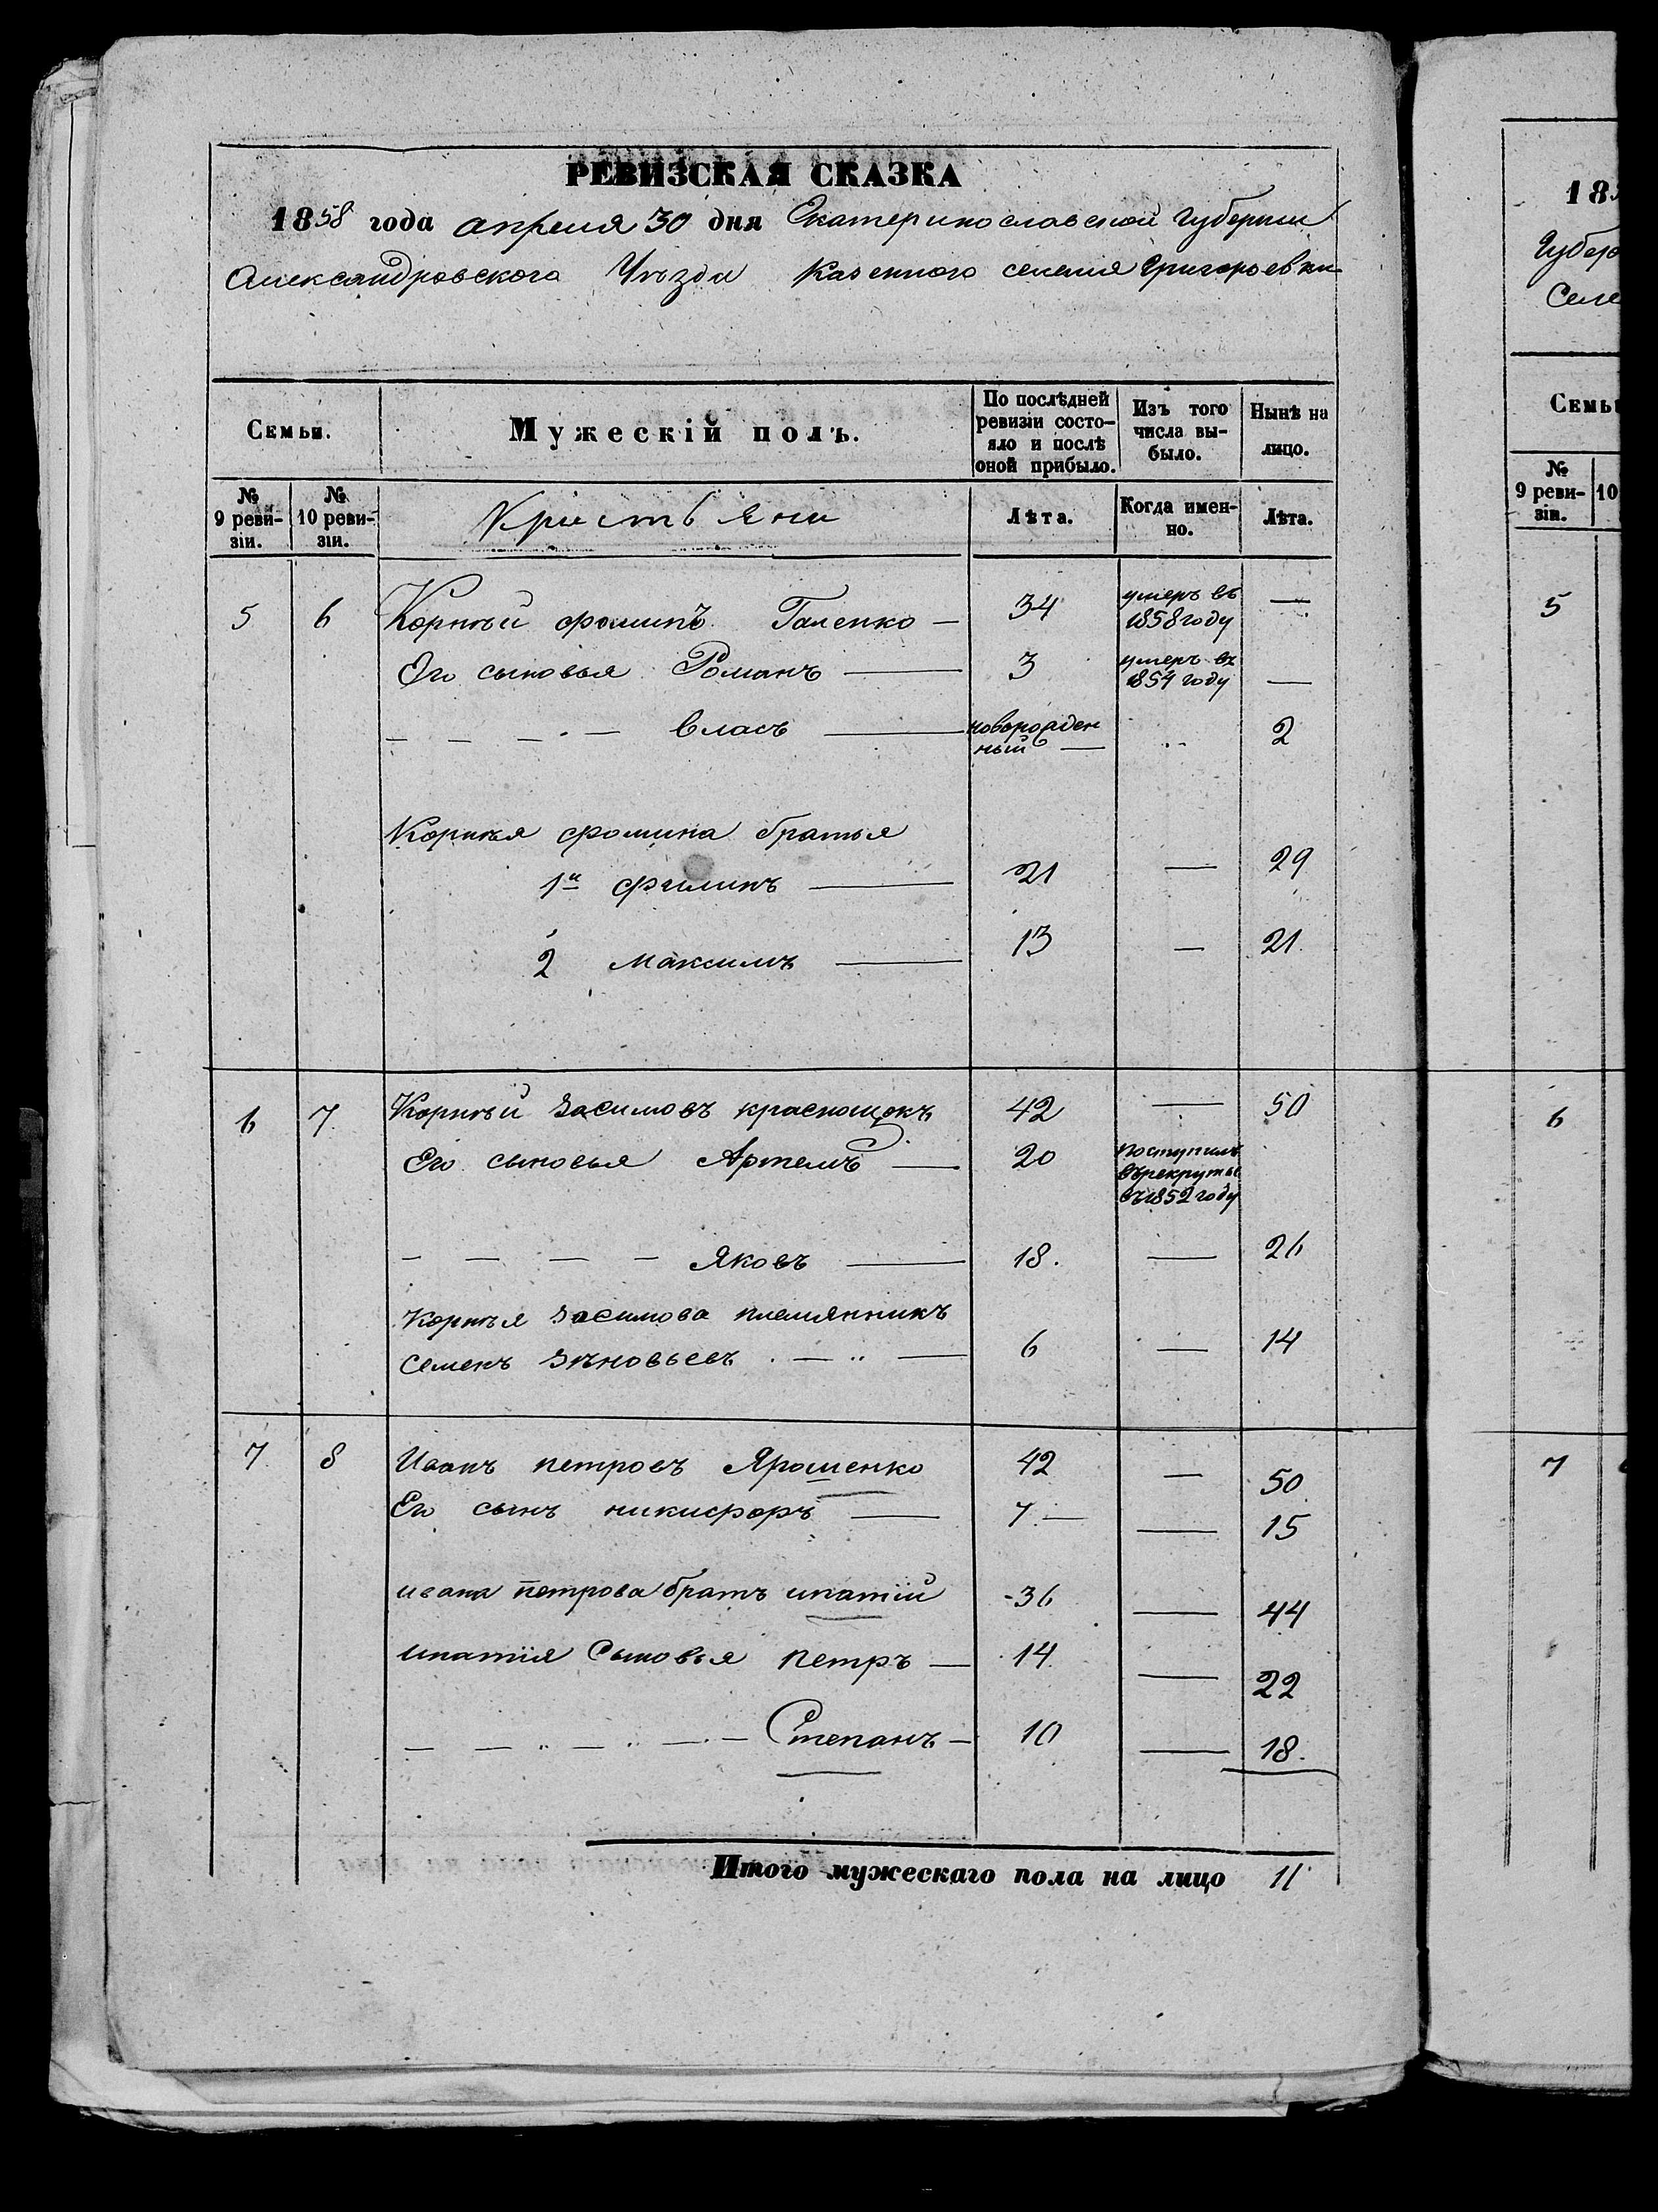 РЕВИЗСКАЯ СКАЗКА
1858 года апреля 30 дня Екатеринославской губернии
Александровского Уѣзда Казенного селения Григорьевки
Семьи.
Мужескій полъ.
По послѣдней ревизіи состояло и послѣ оной прибыло.
Изъ того числа выбыло.
Нынѣ на лицо.
№ 9 ревизіи.
№ 10 ревизіи.
Кристьяни
Лѣта.
Когда именно.
Лѣта.
5 6 Корнѣй фоминъ Галенко — 34 умеръ въ 1858 году —
Его сыновья Романъ — 3 умеръ въ 1854 году —
— — — · — власъ — новорожденный — 2
Корнѣя фомина братья
1й филипъ — 21 — 29
2 максимъ — 13 — 21
6 7 Корнѣй засимовъ краснощокъ 42 — 50
Его сыновья Артемъ — 20 поступилъ върекруты въ 1852 году
— — — — Яковъ — 18. — 26
Корнѣя засимова племянникъ
семенъ зѣновьевъ · — „ — 6 — 14
7 8 Иванъ петровъ Ярошенко 42 — 50
Его сынъ никифоръ — 7 — — 15
ивана петрова братъ ипатій -36 — 44
ипатія Сыновья петръ — 14 — 22
— — „ — „ — · — Степанъ — 10 — 18.
Итого мужескаго пола на лицо 11
18
Губер
Селе
Семьи
№ 9 ревизіи.
10
5
6
7